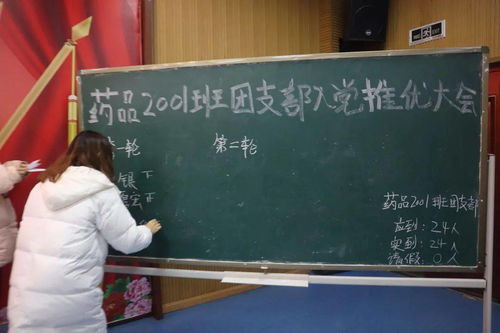 药品2001班团支部入党推优大会
一轮
第二轮
银 下
宏 正
药品2001班团支部
应到：24人
实到：24人
请假：0人